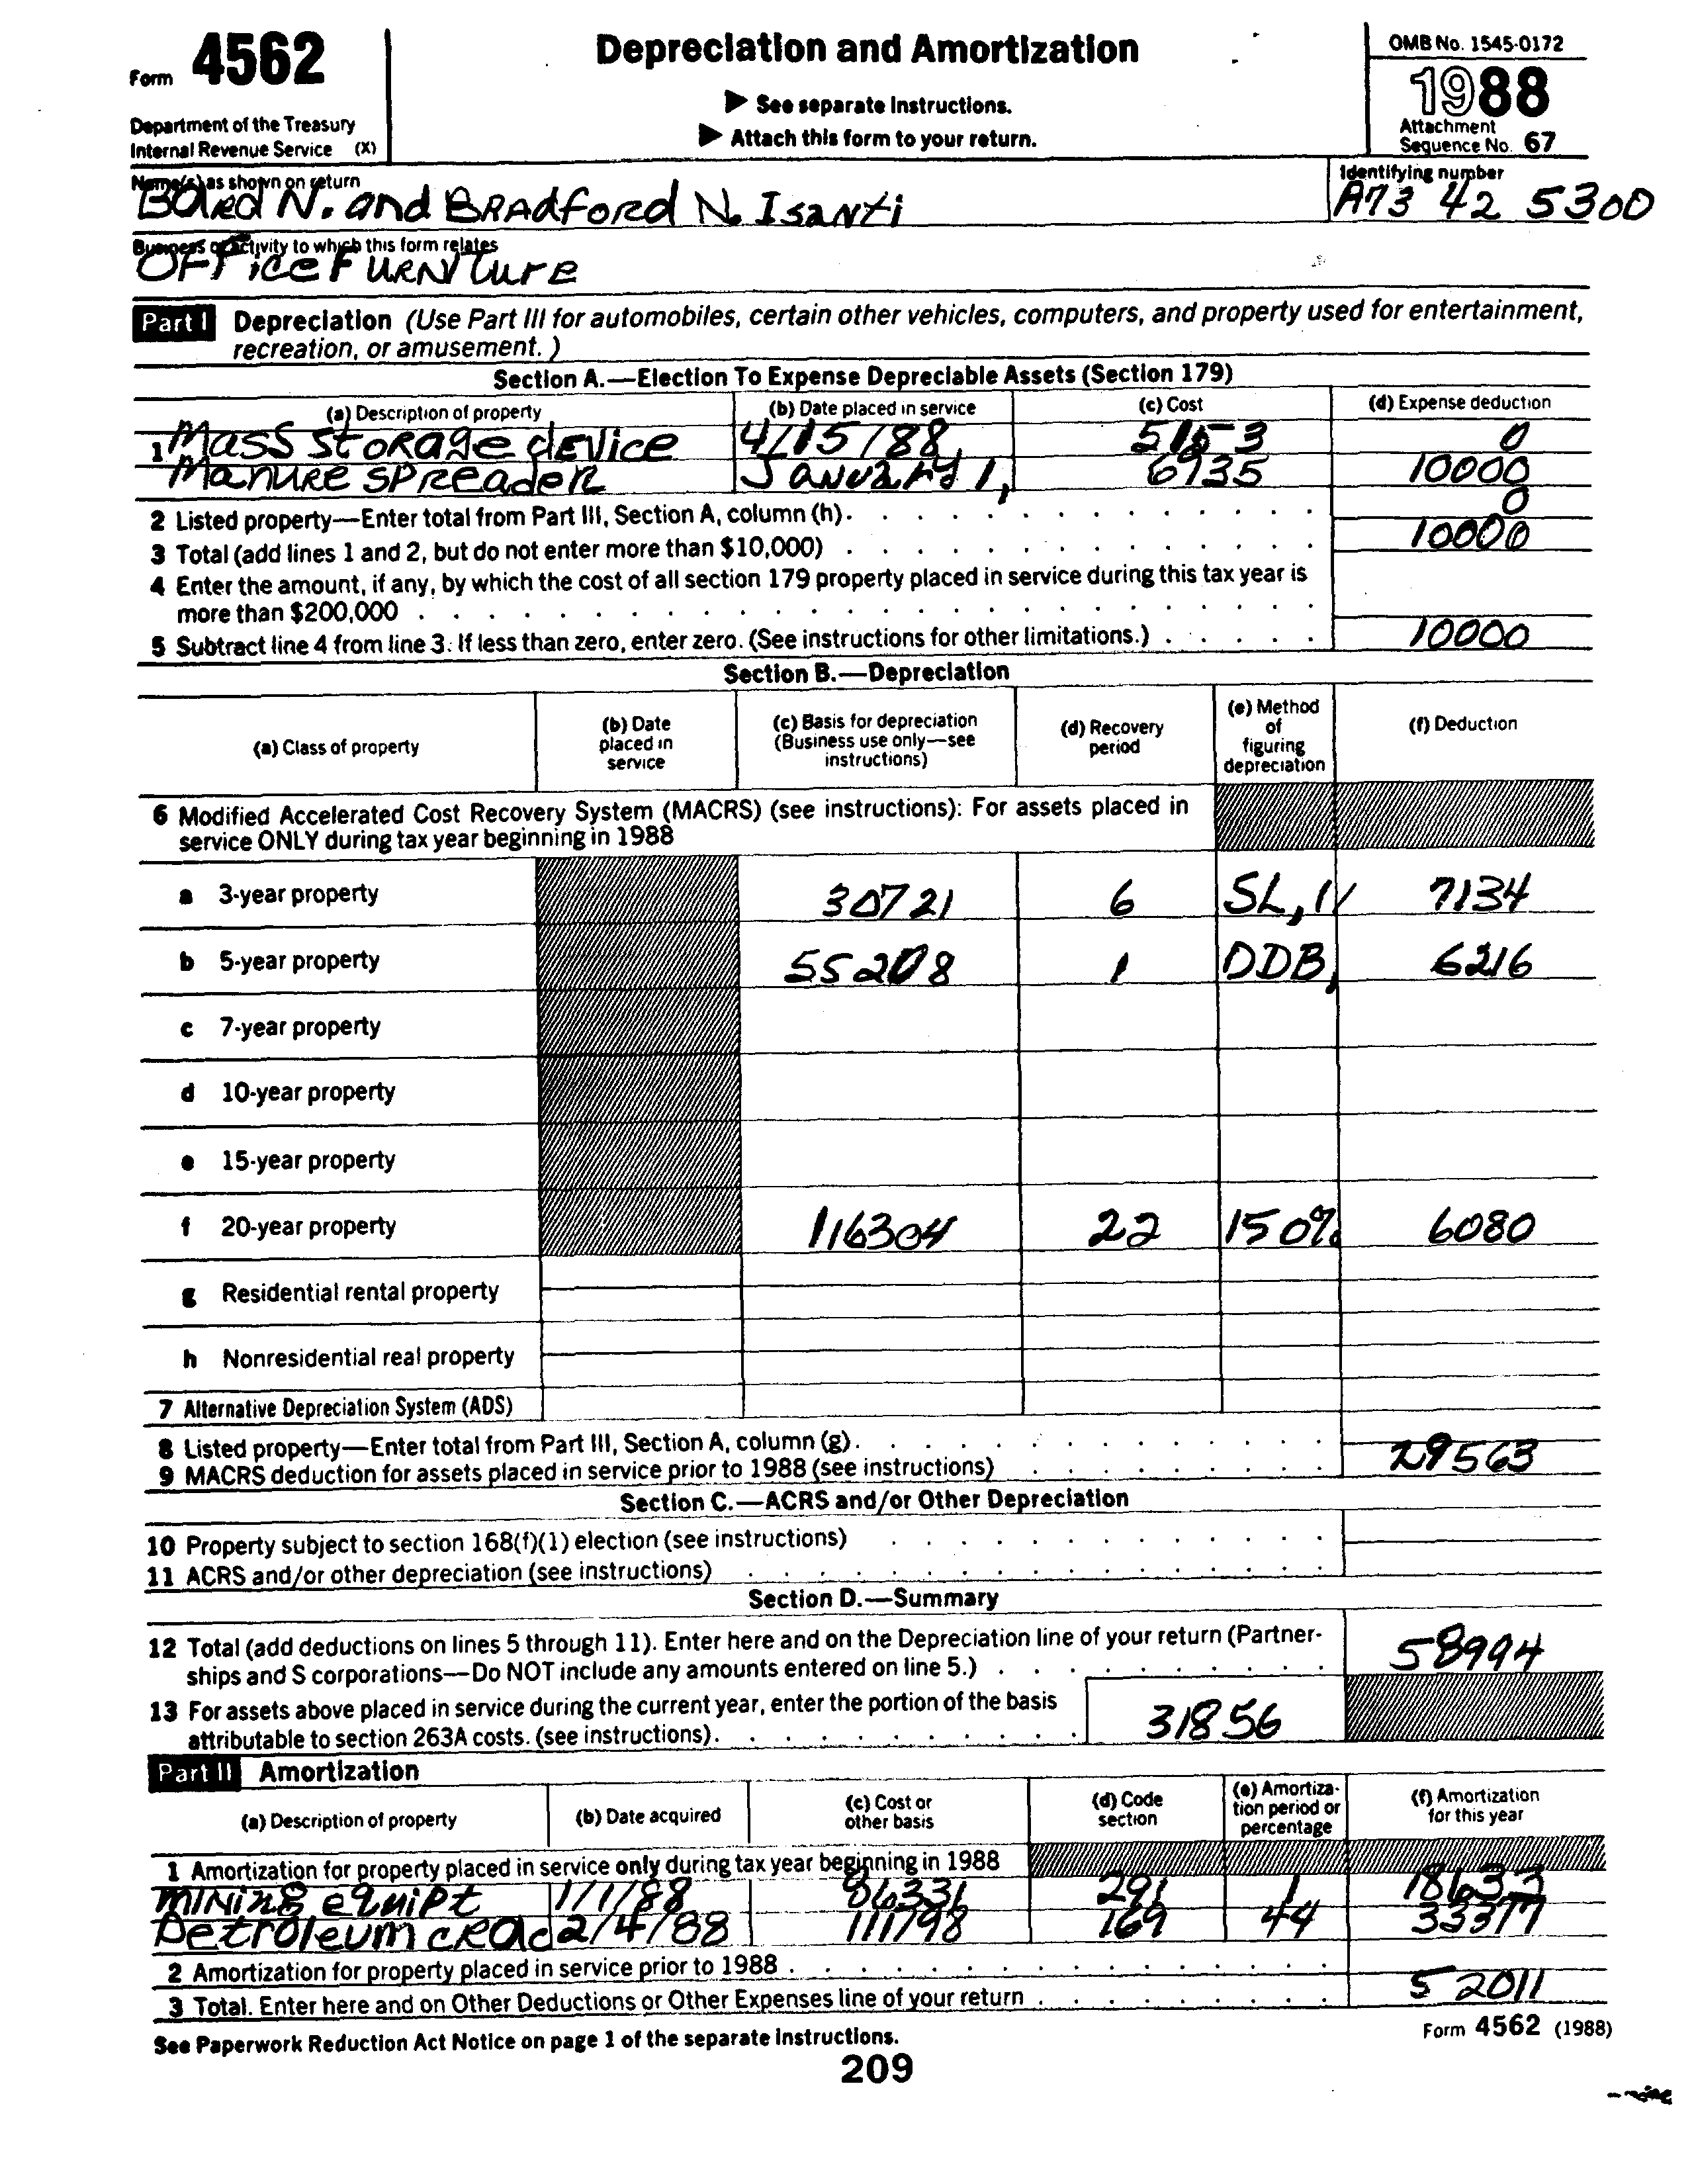 Form 4562
Department of the Treasury
Internal Revenue Service (X)
Depreciation and Amortization
▶ See separate instructions.
▶ Attach this form to your return.
OMB No. 1545-0172
1988
Attachment
Sequence No. 67
Name(s) as shown on return
Baird N. and BRAdford N. Isanti
Identifying number
A73 42 5300
Business or activity to which this form relates
OFFice FURNiture
Part I Depreciation (Use Part III for automobiles, certain other vehicles, computers, and property used for entertainment,
recreation, or amusement.)
Section A.—Election To Expense Depreciable Assets (Section 179)
(a) Description of property (b) Date placed in service (c) Cost (d) Expense deduction
1 Mass storage device 4/15/88 5153 0
Manure spreader January 1, 6935 10000
2 Listed property—Enter total from Part III, Section A, column (h). 0
3 Total (add lines 1 and 2, but do not enter more than $10,000) 10000
4 Enter the amount, if any, by which the cost of all section 179 property placed in service during this tax year is
more than $200,000
5 Subtract line 4 from line 3. If less than zero, enter zero. (See instructions for other limitations.) 10000
Section B.—Depreciation
(a) Class of property (b) Date placed in service (c) Basis for depreciation (Business use only—see instructions) (d) Recovery period (e) Method of figuring depreciation (f) Deduction
6 Modified Accelerated Cost Recovery System (MACRS) (see instructions): For assets placed in
service ONLY during tax year beginning in 1988
a 3-year property 30721 6 SL, 7134
b 5-year property 55208 1 DDB, 6216
c 7-year property
d 10-year property
e 15-year property
f 20-year property 116304 22 150% 6080
g Residential rental property
h Nonresidential real property
7 Alternative Depreciation System (ADS)
8 Listed property—Enter total from Part III, Section A, column (g).
9 MACRS deduction for assets placed in service prior to 1988 (see instructions) 29563
Section C.—ACRS and/or Other Depreciation
10 Property subject to section 168(f)(1) election (see instructions)
11 ACRS and/or other depreciation (see instructions)
Section D.—Summary
12 Total (add deductions on lines 5 through 11). Enter here and on the Depreciation line of your return (Partner-
ships and S corporations—Do NOT include any amounts entered on line 5.) 58994
13 For assets above placed in service during the current year, enter the portion of the basis
attributable to section 263A costs. (see instructions). 31856
Part II Amortization
(a) Description of property (b) Date acquired (c) Cost or other basis (d) Code section (e) Amortization period or percentage (f) Amortization for this year
1 Amortization for property placed in service only during tax year beginning in 1988
Mining equipt 1/1/88 86331 291 1 18633
Petroleum crac 2/4/88 111798 169 44 33377
2 Amortization for property placed in service prior to 1988
3 Total. Enter here and on Other Deductions or Other Expenses line of your return 52011
See Paperwork Reduction Act Notice on page 1 of the separate instructions.
Form 4562 (1988)
209